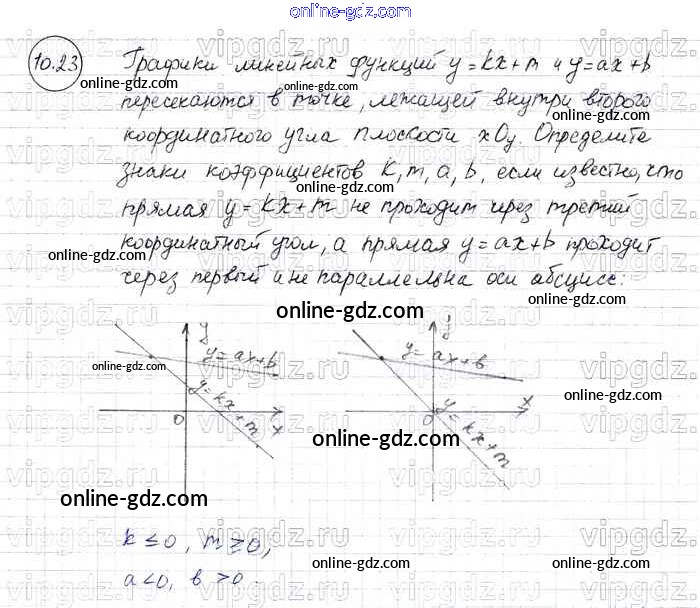 online-gdz.com
10.23
Графики линейных функций y=kx+m и y=ax+b
online-gdz.com
пересекаются в точке, лежащей внутри второго
online-gdz.com
координатного угла плоскости xOy. Определите
знаки коэффициентов k, m, a, b, если известно, что
online-gdz.com
прямая y=kx+m не проходит через третий
координатный угол, а прямая y=ax+b проходит
online-gdz.com
через первый и не параллельна оси абсцисс:
online-gdz.com
online-gdz.com
y
y=ax+b
y=kx+m
0
x
y
y=ax+b
y=kx+m
0
x
online-gdz.com
online-gdz.com
online-gdz.com
online-gdz.com
k ≤ 0, m ≥ 0,
online-gdz.com
a < 0, b > 0.
online-gdz.com